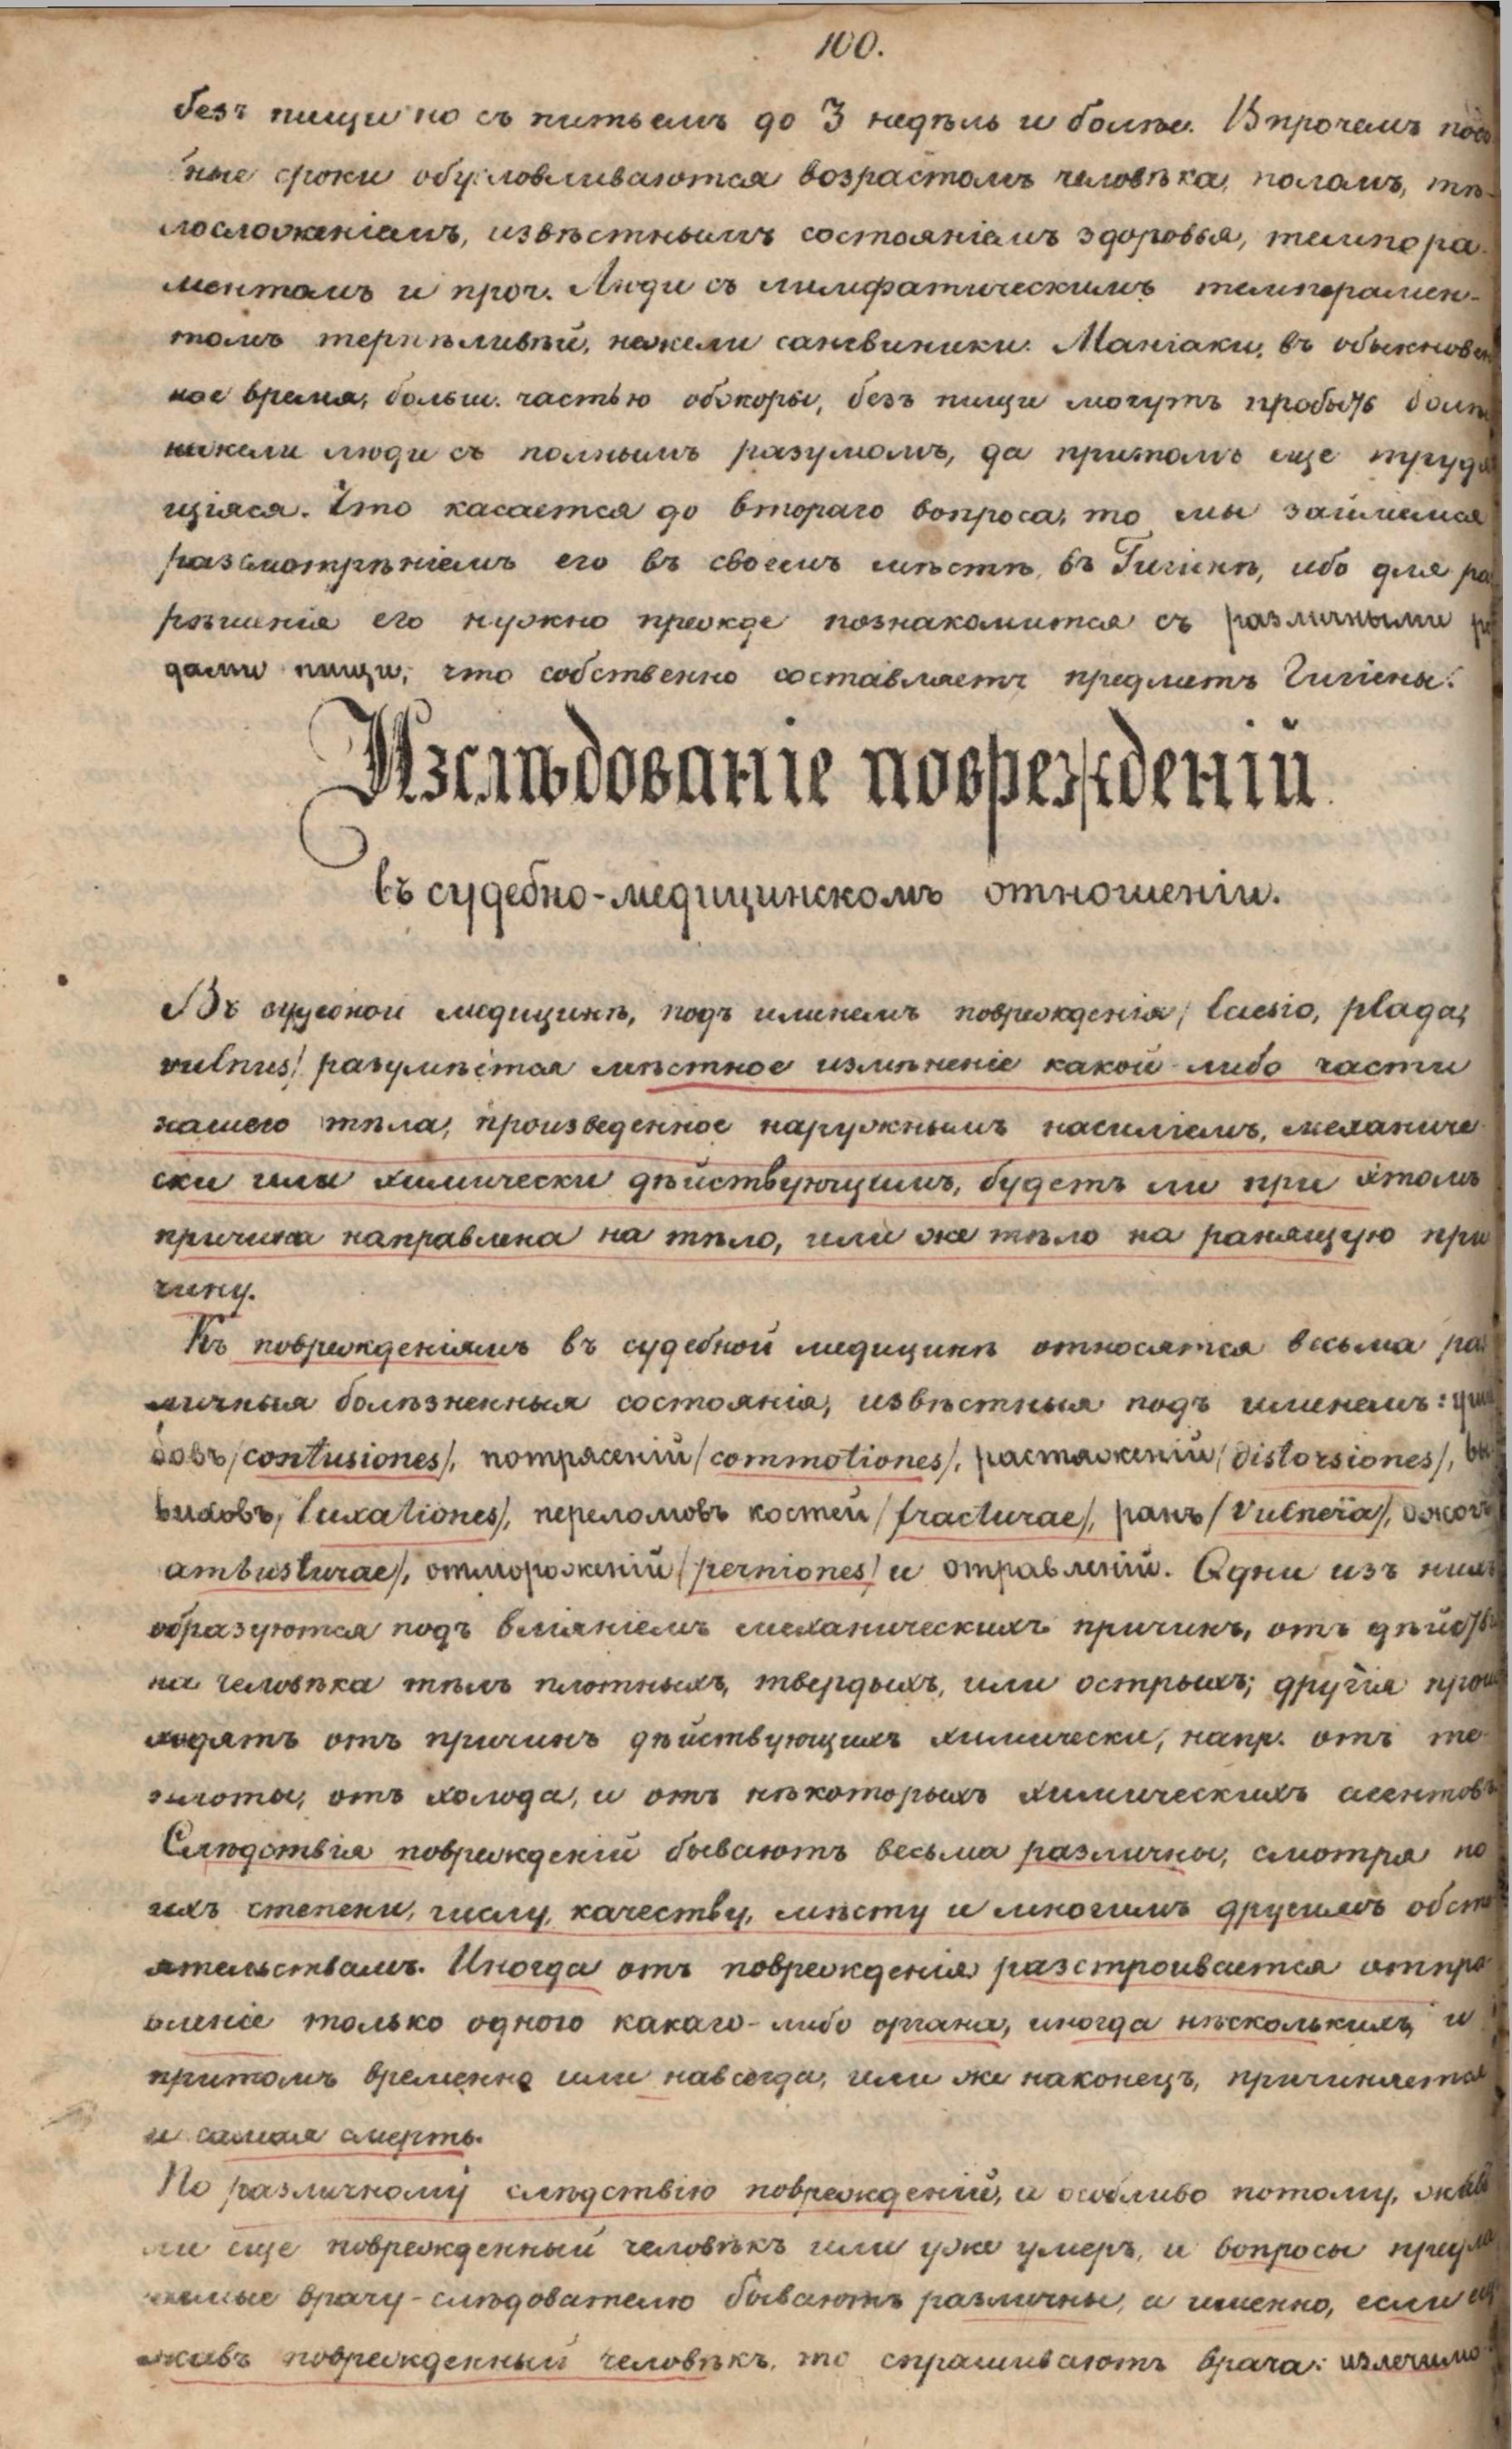 100.
безъ пищи но съ питьемъ до 3 недѣль и болѣе. Впрочемъ подо
бные сроки обусловливаются возрастомъ человѣка, поломъ, тѣ-
лосложеніемъ, извѣстнымъ состояніемъ здоровья, темпера-
ментомъ и проч. Люди съ лимфатическимъ темперамен-
томъ терпѣливѣй, нежели сангвиники. Маніаки, въ обыкновен
ное время, больш. частью обжоры, безъ пищи могутъ пробыть болѣе
нежели люди съ полнымъ разумомъ, да притомъ еще трудя
щіяся. Что касается до втораго вопроса, то мы займемся
разсмотрѣніемъ его въ своемъ мѣстѣ, въ Гигіенѣ, ибо для ра
рѣшенія его нужно прежде познакомится съ различными ро
дами пищи, что собственно составляетъ предметъ Гигіены.
Изслѣдованіе поврежденій
въ судебно-медицинскомъ отношеніи.
Въ судебной медицинѣ, подъ именемъ поврежденія /laesio, plaga,
vulnus/ разумѣется мѣстное измѣненіе какой-либо части
нашего тѣла, произведенное наружнымъ насиліемъ, механиче
ски или химически дѣйствующимъ, будетъ ли при этомъ
причина направлена на тѣло, или же тѣло на ранящую при
чину.
Къ поврежденіямъ въ судебной медицинѣ относятся весьма раз
личныя болѣзненныя состоянія, извѣстныя подъ именемъ: уши
бовъ /contusiones/, потрясеній /commotiones/, растяженій /distorsiones/, вы
виховъ /luxationes/, переломовъ костей /fracturae/, ранъ /vulnera/, ожоговъ
ambusturae/, отмороженій /perniones/ и отравленій. Одни изъ нихъ
образуются подъ вліяніемъ механическихъ причинъ, отъ дѣйствія
на человѣка тѣлъ плотныхъ, твердыхъ, или острыхъ; другія проис
ходятъ отъ причинъ дѣйствующихъ химически, напр. отъ те-
плоты, отъ холода, и отъ нѣкоторыхъ химическихъ агентовъ
Слѣдствія поврежденій бываютъ весьма различны, смотря по
ихъ степени, числу, качеству, мѣсту и многимъ другимъ обсто
ятельствамъ. Иногда отъ поврежденія разстроивается отпра
вленіе только одного какаго-либо органа, иногда нѣсколькихъ, и
притомъ временно или навсегда, или же наконецъ, причиняется
и самая смерть.
По различному слѣдствію поврежденій, и особливо потому, живъ
ли еще поврежденный человѣкъ или уже умеръ, и вопросы предла
гаемые врачу-слѣдователю бываютъ различны, а именно, если еще
живъ поврежденный человѣкъ, то спрашиваютъ врача: излечимо